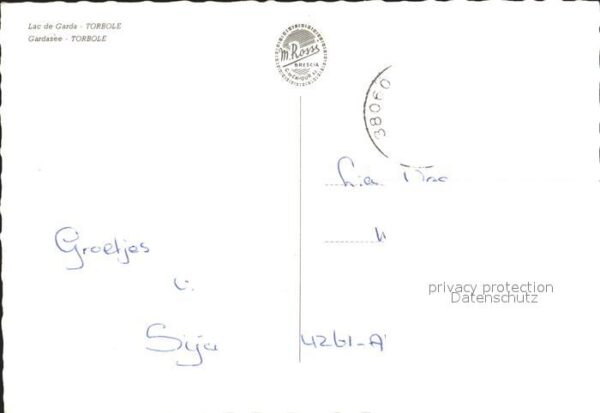 Lac de Garda - TORBOLE
Gardasee - TORBOLE
M. Rossi
BRESCIA
38060
Groetjes
v.
Sija
privacy protection
Datenschutz
4261-A